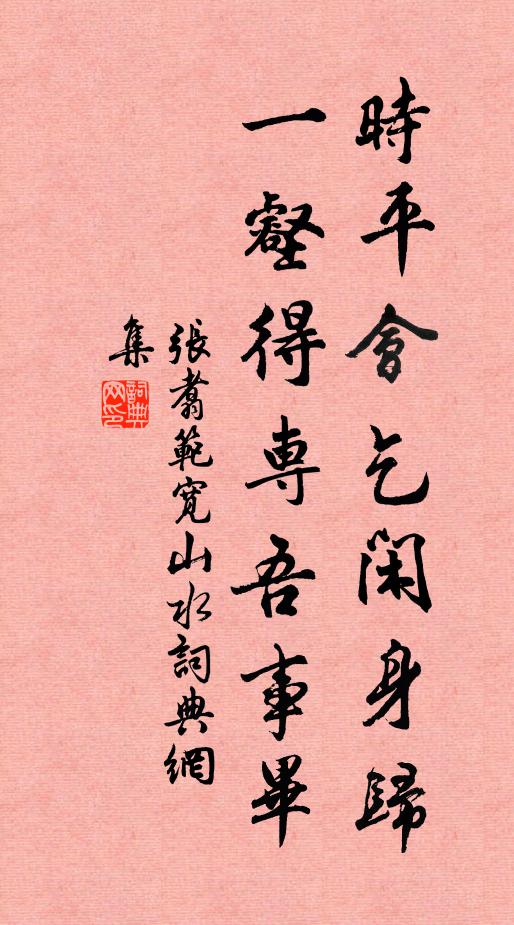 時平會乞閑身歸
一壑得専吾事畢
張翥範寬山水詞典網
集
詞典網印